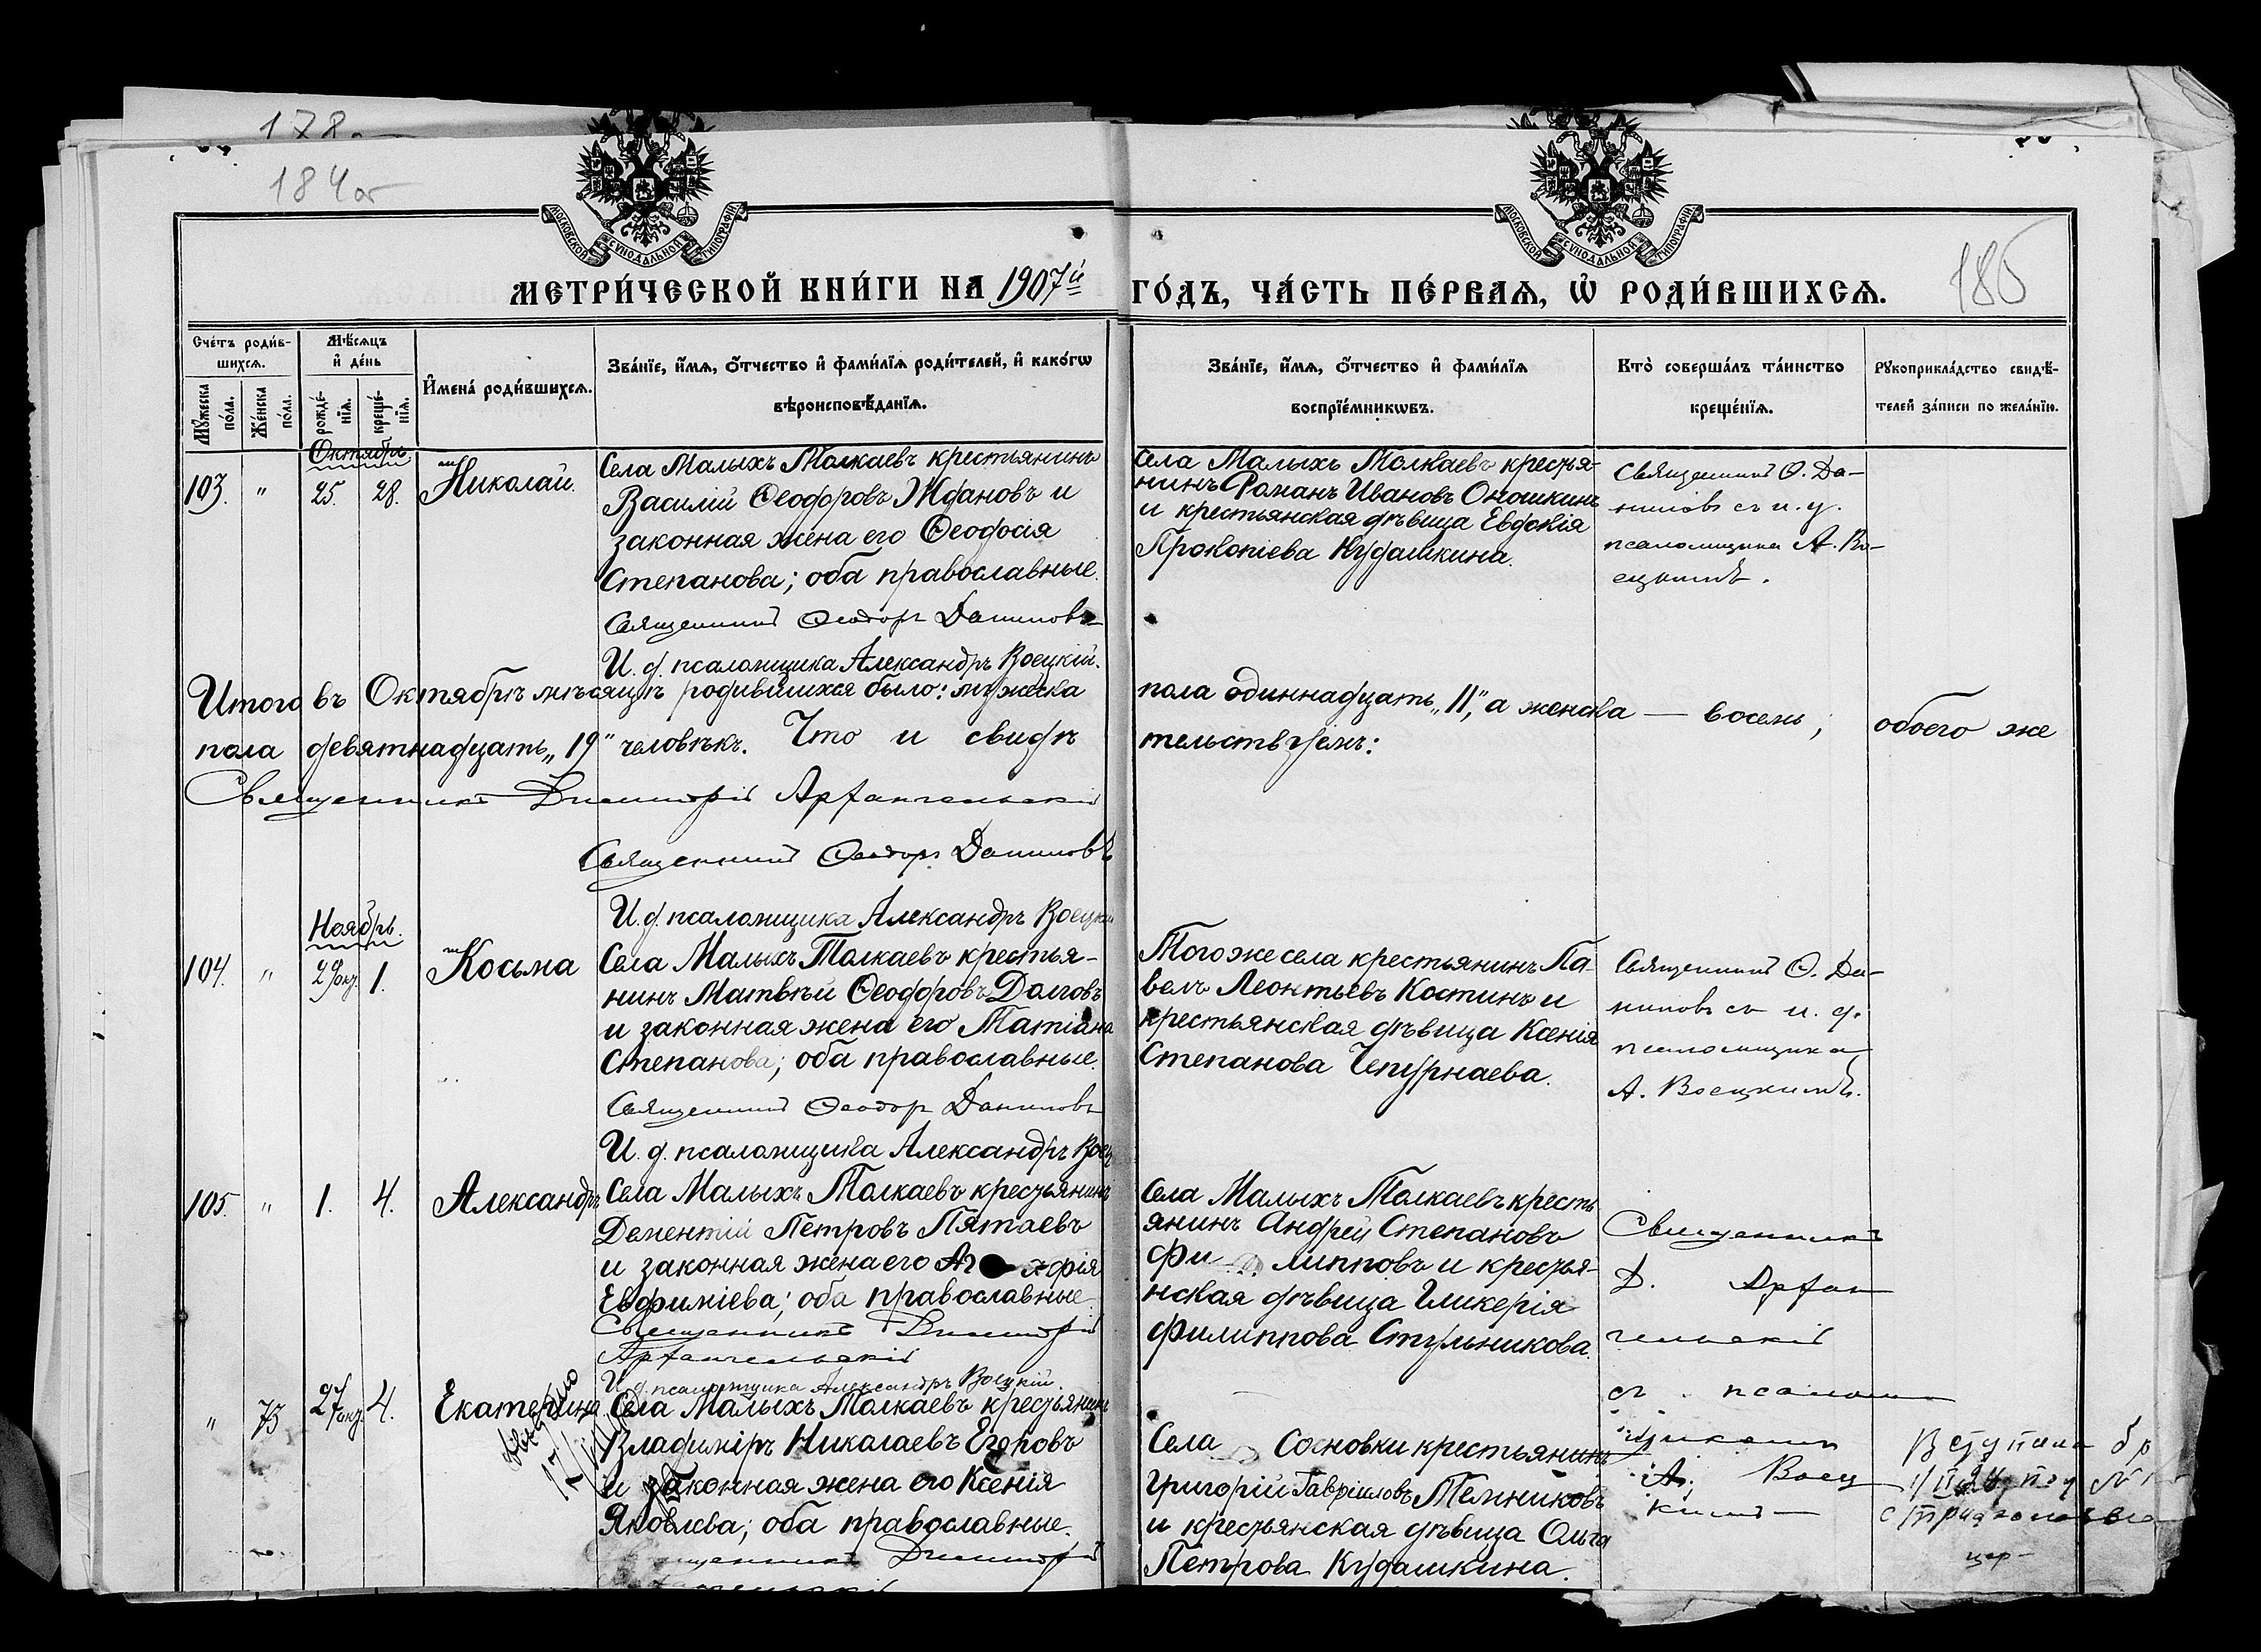 178
184об
МОСКОВСКОЙ СѴНОДАЛЬНОЙ ТИПОГРАФІИ
МОСКОВСКОЙ СѴНОДАЛЬНОЙ ТИПОГРАФІИ
185
МЕТРИ́ЧЕСКОЙ КНИ́ГИ НА 1907й ГО́ДЪ, ЧА́СТЬ ПЕ́РВАѦ, Ѡ҆ РОДИ́ВШИХСѦ.
Сче́тъ роди́в-
шихсѧ.
Мꙋ́жеска по́ла.
Же́нска по́ла.
Мѣ́сѧцъ
и҆ де́нь
рожде́-
нїѧ.
креще́-
нїѧ.
И҆мена̀ роди́вшихсѧ.
Зва́нїе, и҆́мѧ, ѻ҆́тчество и҆ фами́лїѧ роди́телей, и҆ како́гѡ
вѣроисповѣ́данїѧ.
Зва́нїе, и҆́мѧ, ѻ҆́тчество и҆ фами́лїѧ
воспрїе́мникѡвъ.
Кто̀ соверша́лъ та́инство
креще́нїѧ.
Рꙋкоприкла́дство свидѣ́-
телей за́писи по жела́нїю.
Октябрь
103. " 25. 28. Николай.
Села Малыхъ Толкаевъ крестьянинъ
Василій Ѳеодоровъ Ждановъ и
законная жена его Ѳеодосія
Степанова; оба православные.
Священникъ Ѳеодоръ Даниловъ
И. д. псаломщика Александръ Воецкій.
Села Малыхъ Толкаевъ крестья-
нинъ Романъ Ивановъ Оношкинъ
и крестьянская дѣвица Евдокія
Прокопіева Кудашкина.
Священникъ Ѳ. Да-
ниловъ съ и. д.
псаломщика А. Во-
ецкимъ.
Итого въ Октябрѣ мѣсяцѣ родившихся было: мужеска пола одиннадцать „11", а женска — восемь; обоего же
пола девятнадцать „19" человѣкъ. Что и свидѣтельствуемъ:
Священникъ Димитрій Архангельскій
Священникъ Ѳеодоръ Даниловъ
И. д. псаломщика Александръ Воецкій
Ноябрь.
104. " 29 окт. 1. Косьма
Села Малыхъ Толкаевъ крестья-
нинъ Матвѣй Ѳеодоровъ Долговъ
и законная жена его Татіана
Степанова; оба православные.
Священникъ Ѳеодоръ Даниловъ
И. д. псаломщика Александръ Воец
Того же села крестьянинъ Па-
велъ Леонтьевъ Костинъ и
крестьянская дѣвица Ксенія
Степанова Чепурнаева.
Священникъ Ѳ. Да-
ниловъ съ и. д.
псаломщика
А. Воецкимъ.
105. " 1. 4. Александръ
Села Малыхъ Толкаевъ крестьянинъ
Дементій Петровъ Пятаевъ
и законная жена его
Евфиміева; оба православные
Священникъ Димитрій
Архангельскій
И. д. псаломщика Александръ Воецкій
Села Малыхъ Толкаевъ кресть
янинъ Андрей Степановъ
Филипповъ и крестья-
нская дѣвица Гликерія
Филиппова Стульникова.
Священникъ
Д. Архан
гельскій
съ псалом
щикомъ
А. Воец
кимъ
" 73 27 окт. 4. Екатерина
Села Малыхъ Толкаевъ крестьянинъ
Владиміръ Николаевъ Егоровъ
и законная жена его Ксенія
Яковлева; оба православные.
Священникъ Димитрій
Села Сосновки крестьянинъ
Григорій Гавріиловъ Темниковъ
и крестьянская дѣвица Ольга
Петрова Кудашкина.
Вступила бр